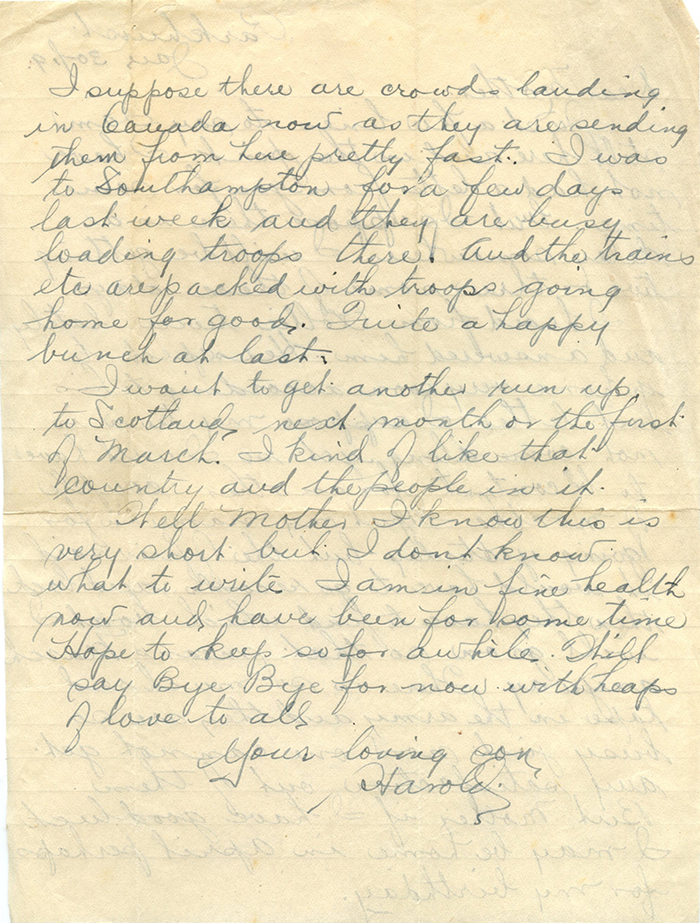 I suppose there are crowds landing
in Canada now as they are sending
them from here pretty fast. I was
to Southampton for a few days
last week and they are busy
loading troops there. And the trains
etc are packed with troops going
home for good. Quite a happy
bunch at last.
I want to get another run up
to Scotland next month or the first
of March. I kind of like that
country and the people in it.
Well Mother I know this is
very short but I dont know
what to write I am in fine health
now and have been for some time
Hope to keep so for awhile. Will
say Bye Bye for now with heaps
of love to all.
Your loving son
Harold.